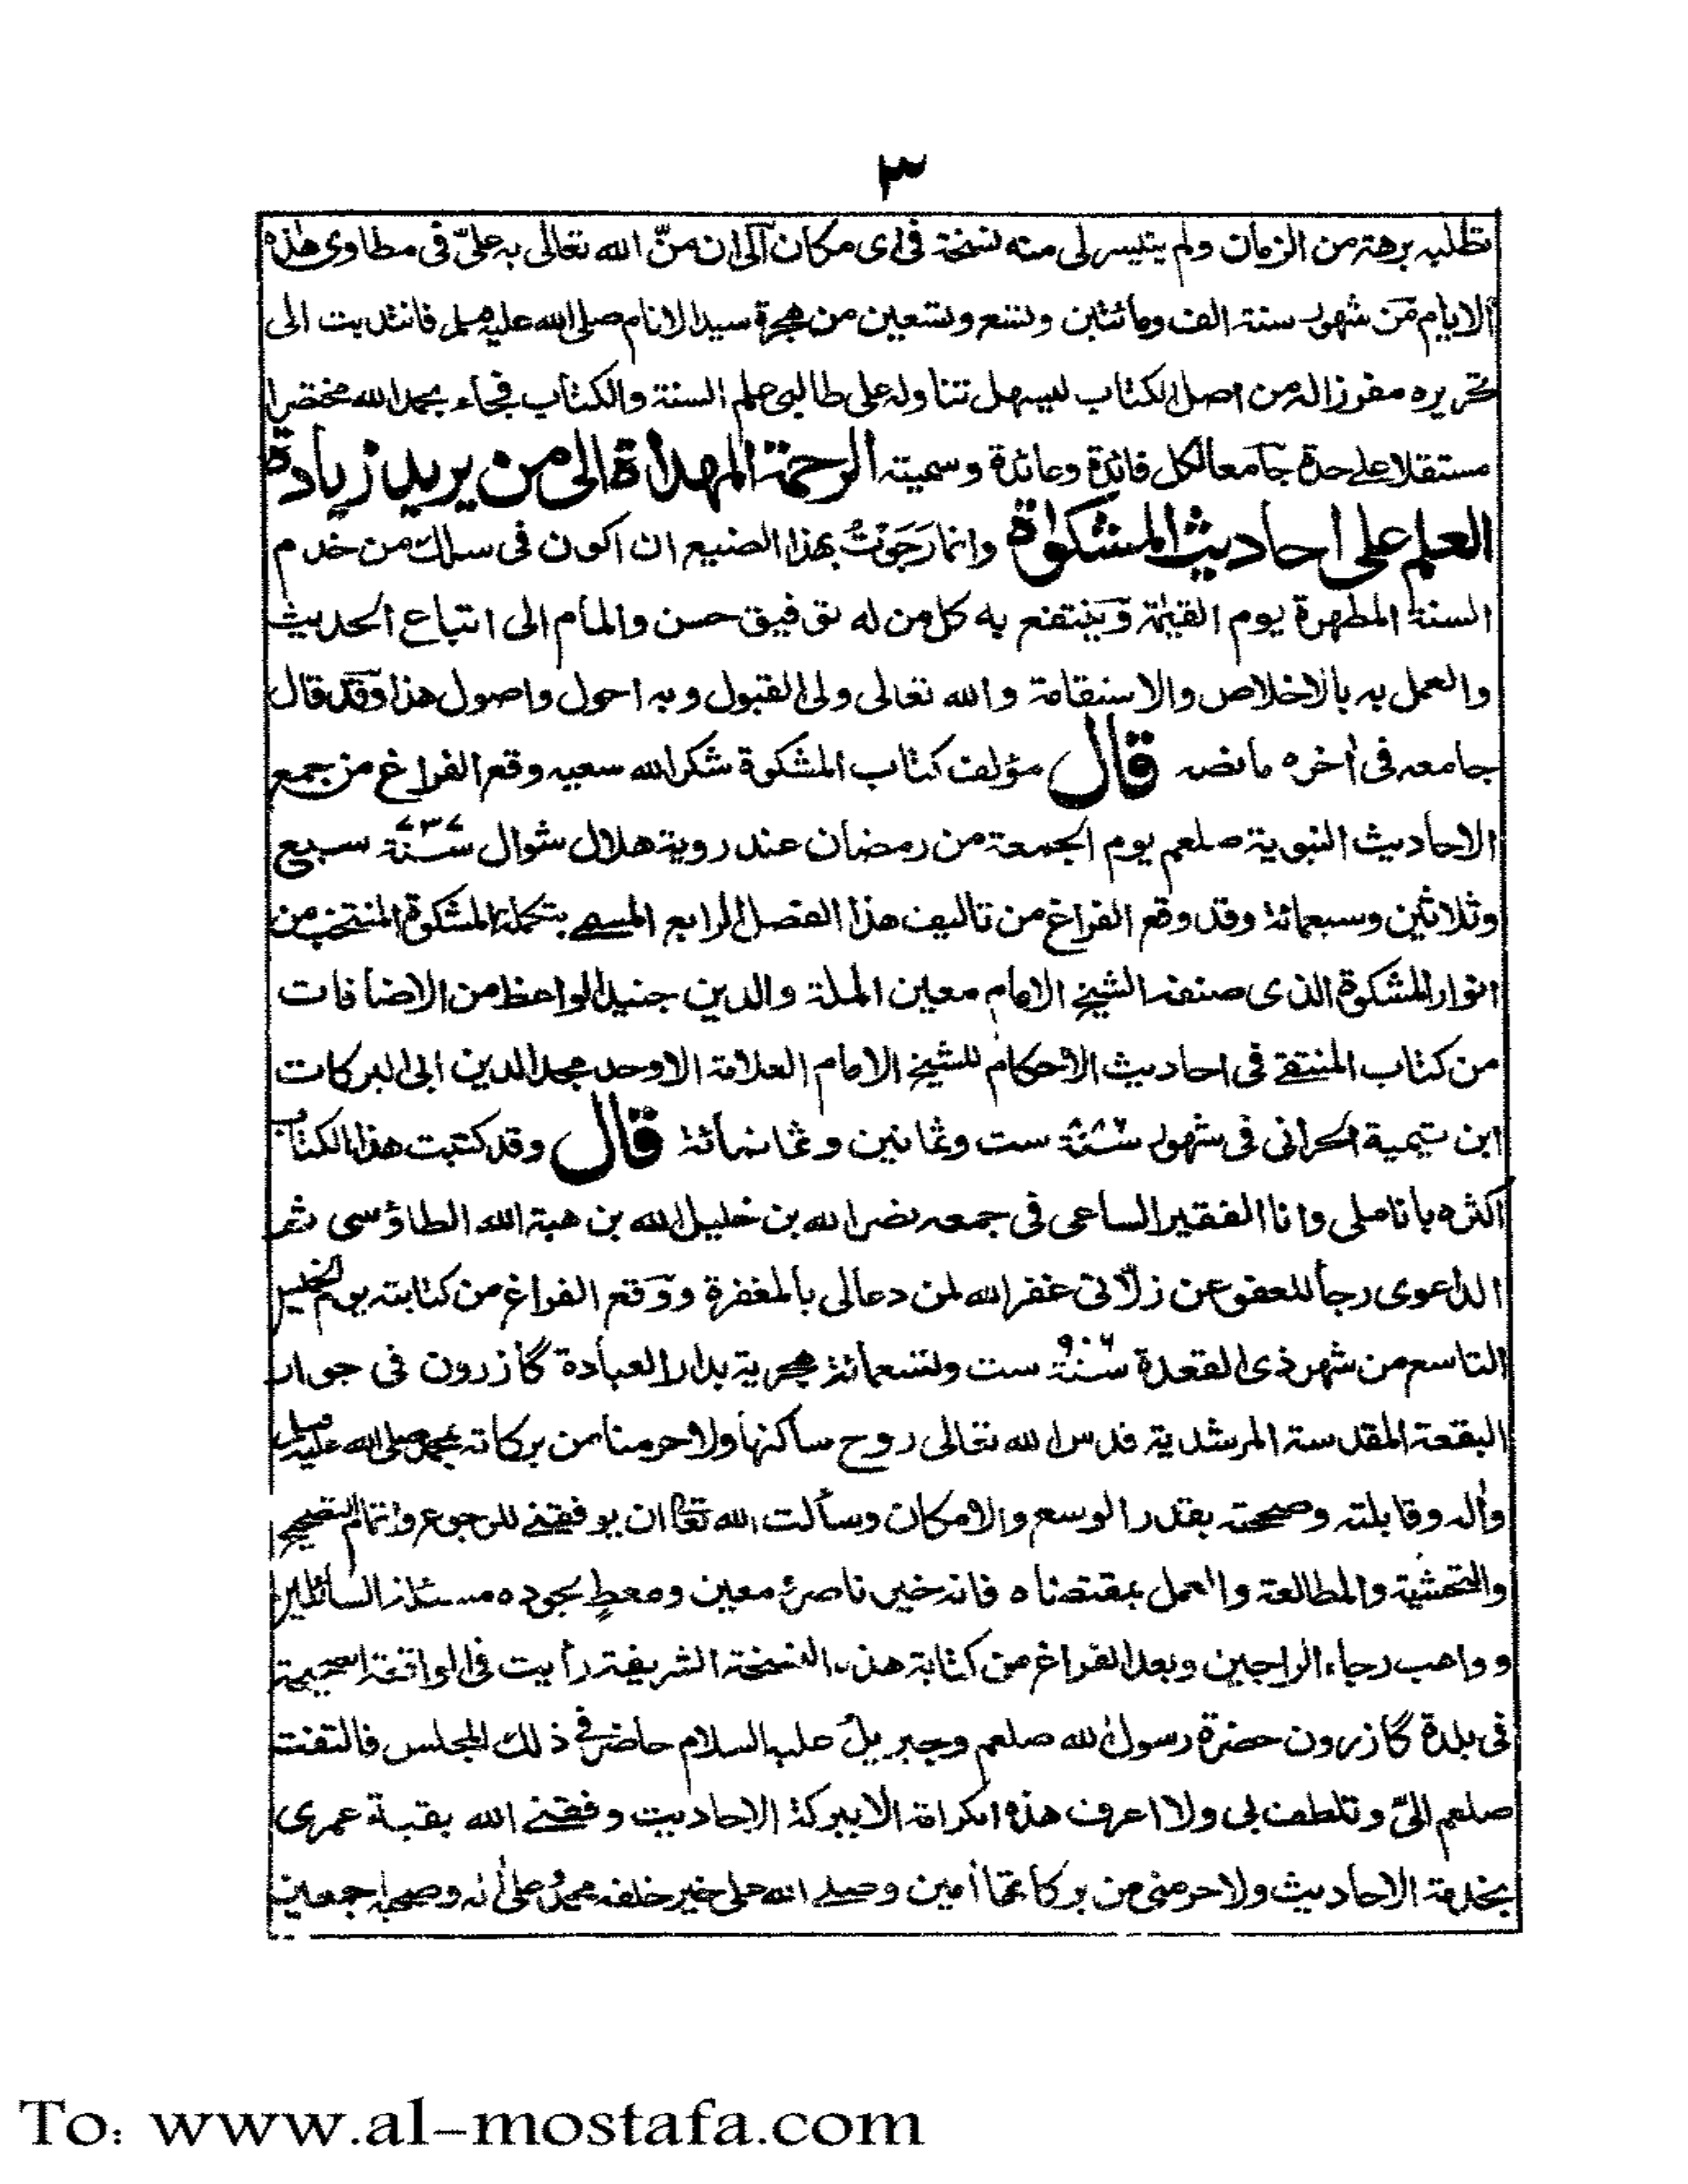 ٣
تطلبه برهة من الزمان ولم يتيسر لى منه نسخة فى اى مكان آلى ان منّ الله تعالى به علىّ فى مطاوى هذه
الايام من شهور سنة الف ومائتين وتسع وتسعين من هجرة سيد الانام صلى الله عليه وسلم فانتدبت الى
تحريره مفرزا له من اصل الكتاب ليسهل تناوله على طالبى علم السنة والكتاب فجاء بحمد الله مختصرا
مستقلا على حدة جامعا لكل فائدة وعائدة وسميته الرحمة المهداة الى من يريد زيادة
العلم على احاديث المشكوٰة وانما رَجَوْتُ بهذا الصنيع ان اكون فى سلك من خدم
السنة المطهرة يوم القيٰمة وَيَنتفع به كل من له توفيق حسن والمام الى اتباع الحديث
والعمل به بالاخلاص والاستقامة والله تعالى ولى القبول وبه احول واصول هذا وَقد قال
جامعه فى أخره ما نصه قال مؤلف كتاب المشكوة شكر الله سعيه وقع الفراغ من جمع
الاحاديث النبوية صلعم يوم الجمعة من رمضان عند روية هلال شوال سنة ٧٣٧ سبع
وثلاثين وسبعمائة وقد وقع الفراغ من تاليف هذا الفصل الرابع المسمى بتكملة المشكوة المنتخب من
انوار المشكوة الذى صنفه الشيخ الامام معين الملة والدين جنيد الواعظ من الاضافات
من كتاب المنتقى فى احاديث الاحكام للشيخ الامام العلامة الاوحد مجد الدين ابى البركات
ابن تيمية الحرانى فى شهور سنة ٨٨٦ ست وثمانين وثمانمائة قال وقد كتبت هذا الكتاب
اكثره باناملى وانا الفقير الساعى فى جمعه نصر الله بن خليل الله بن هبة الله الطاؤسى ثم
الدعوى رجأ للعفو عن زلّاتى غفر الله لمن دعا لى بالمغفرة ووَقع الفراغ من كتابته يوم الخميس
التاسع من شهر ذى القعدة سنة ٩٠٦ ست وتسعمائة هجرية بدار العبادة گازرون فى جوار
البقعة المقدسة المرشدية قدس الله تعالى روح ساكنها ولا حرمنا من بركاته بمحمد صلى الله عليه وسلم
وأله وقابلته وصححته بقدر الوسع والامكان وسألت الله تعا ان يوفقنى للرجوع واتمام التصحيح
والتحشية والمطالعة والعمل بمقتضاه فانه خير ناصر ومعين ومعطٍ بجوده مسئلة السائلين
وواهب رجاء الراجين وبعد الفراغ من كتابة هذه النسخة الشريفة رأيت فى الواقعة الصحيحة
فى بلدة گازرون حضرة رسول الله صلعم وجبريل عليه السلام حاضر فى ذلك المجلس فالتفت
صلعم الىّ وتلطف بى ولا اعرف هذه الكرامة الا ببركة الاحاديث وفقنى الله بقية عمرى
بخدمة الاحاديث ولا حرمنى من بركاتها أمين وصلى الله على خير خلقه محمد وعلى أله وصحبه اجمعين
To: www.al-mostafa.com